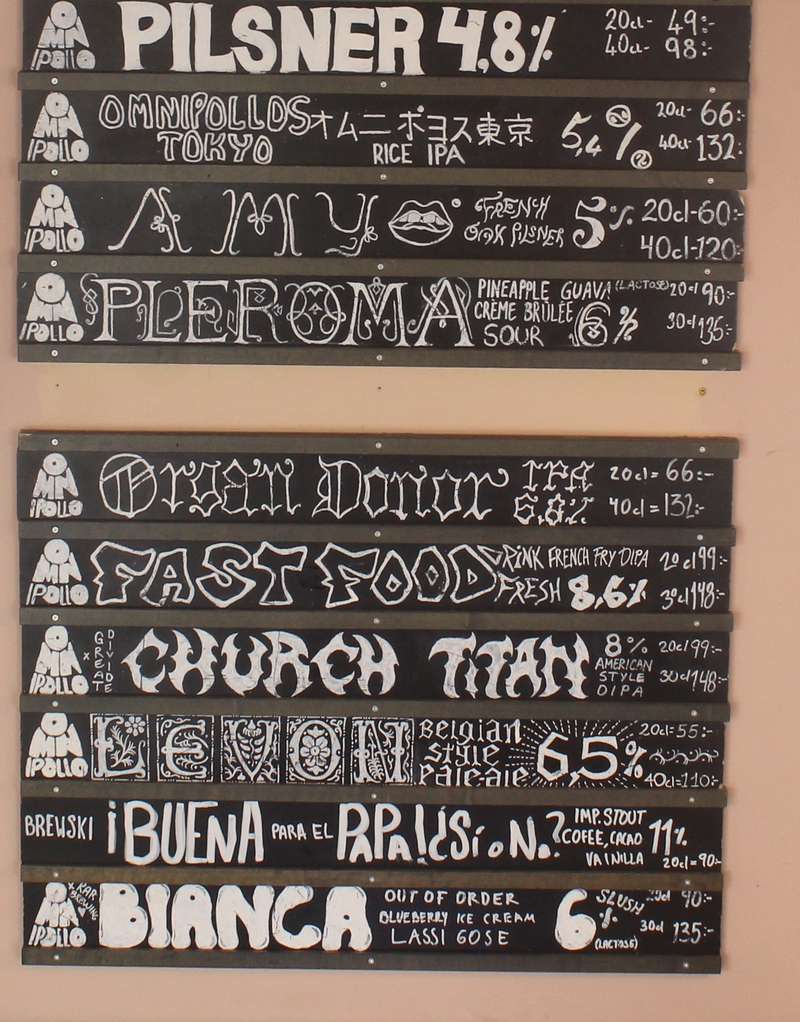 OMNIPOLLO PILSNER 4,8% 20cl- 49:-
40cl- 98:-
OMNIPOLLO OMNIPOLLOS オムニポヨス東京 5,4% 20cl- 66:-
TOKYO RICE IPA 40cl- 132:-
OMNIPOLLO AMY FRENCH 5% 20cl-60:-
OAK PILSNER 40cl-120:-
OMNIPOLLO PLEROMA PINEAPPLE GUAVA (LACTOSE) 20cl 90:-
CRÈME BRÛLÉE 6%
SOUR 30cl 135:-
OMNIPOLLO Organ Donor IPA 20cl= 66:-
6,8% 40cl=132:-
OMNIPOLLO FAST FOOD PINK FRENCH FRY DIPA 20cl 99:-
FRESH 8,6% 30cl 148:-
OMNIPOLLO x GREAT DIVIDE CHURCH TITAN 8% 20cl 99:-
AMERICAN
STYLE 30cl 148:-
DIPA
OMNIPOLLO LEVON Belgian 20cl=55:-
Style 6,5%
Pale-ale 40cl=110:-
BREWSKI ¡BUENA PARA EL PAPALÚSiON? IMP. STOUT
COFEE, CACAO 11%
VAINILLA 20cl=90:-
OMNIPOLLO x KAR BREWING BIANCA OUT OF ORDER 6% SLUSH 20cl 90:-
BLUEBERRY ICE CREAM
LASSI GOSE (LACTOSE) 30cl 135:-